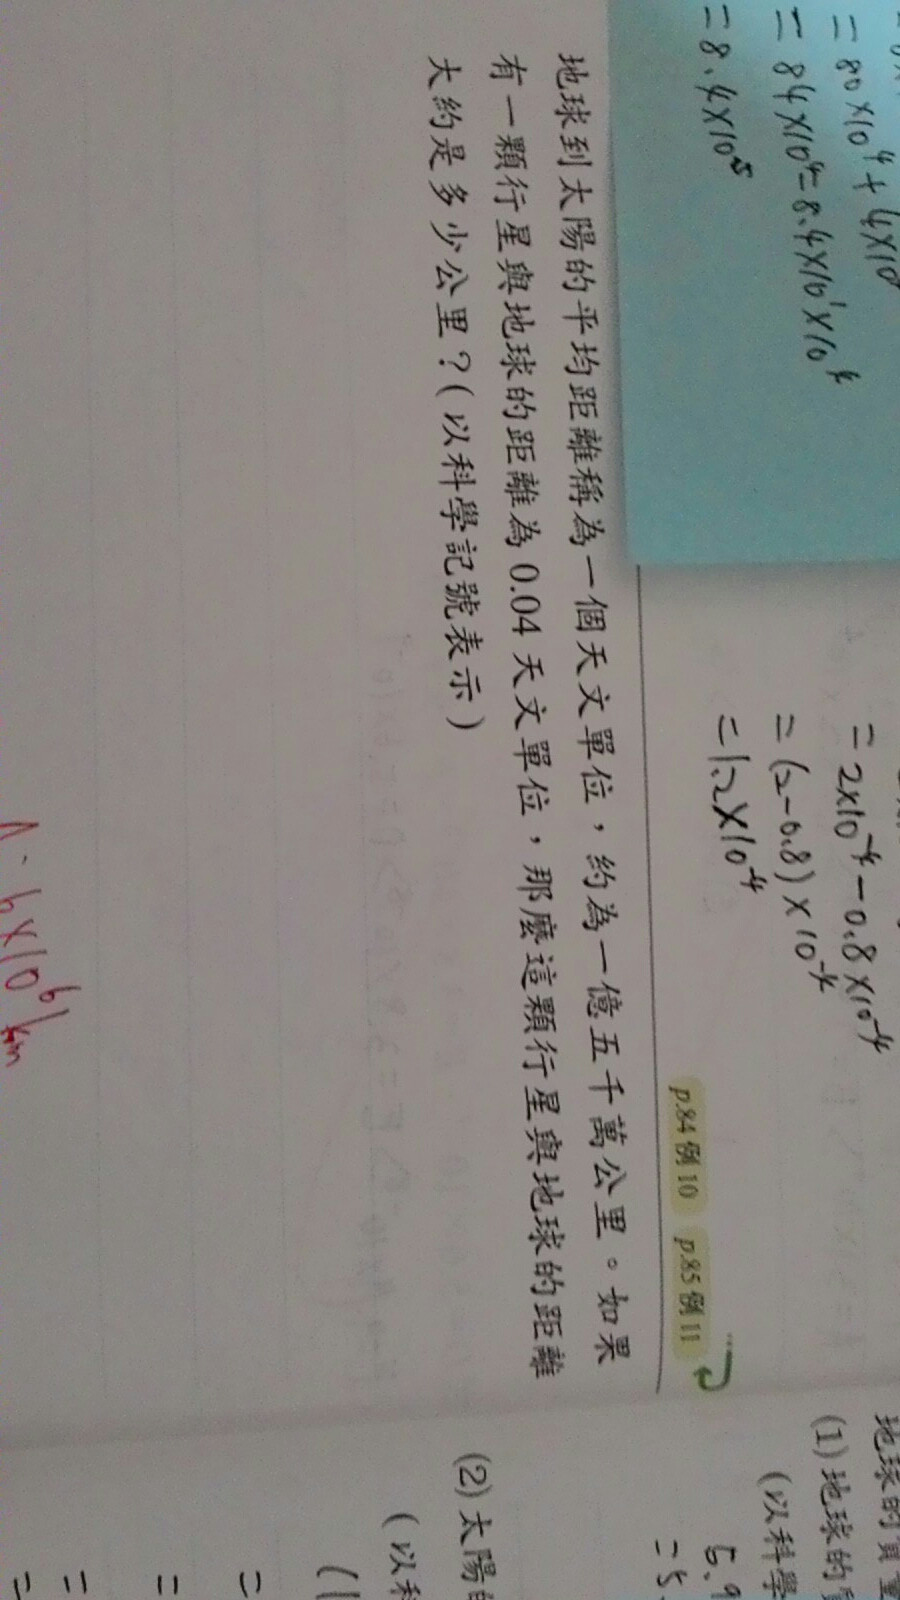 = 80×10⁴ + 4×10
= 84×10⁴ = 8.4×10¹×10⁴
= 8.4×10⁵
= 2×10⁻⁴ - 0.8×10⁻⁴
= (2-0.8)×10⁻⁴
= 1.2×10⁻⁴
p.84 例10 p.85 例11
地球到太陽的平均距離稱為一個天文單位，約為一億五千萬公里。如果
有一顆行星與地球的距離為 0.04 天文單位，那麼這顆行星與地球的距離
大約是多少公里？(以科學記號表示)
6×10⁶ km
地球的質量
(1) 地球的
(以科學
5.9
= 5.
(2) 太陽的
(以科
(1
=
=
=
=